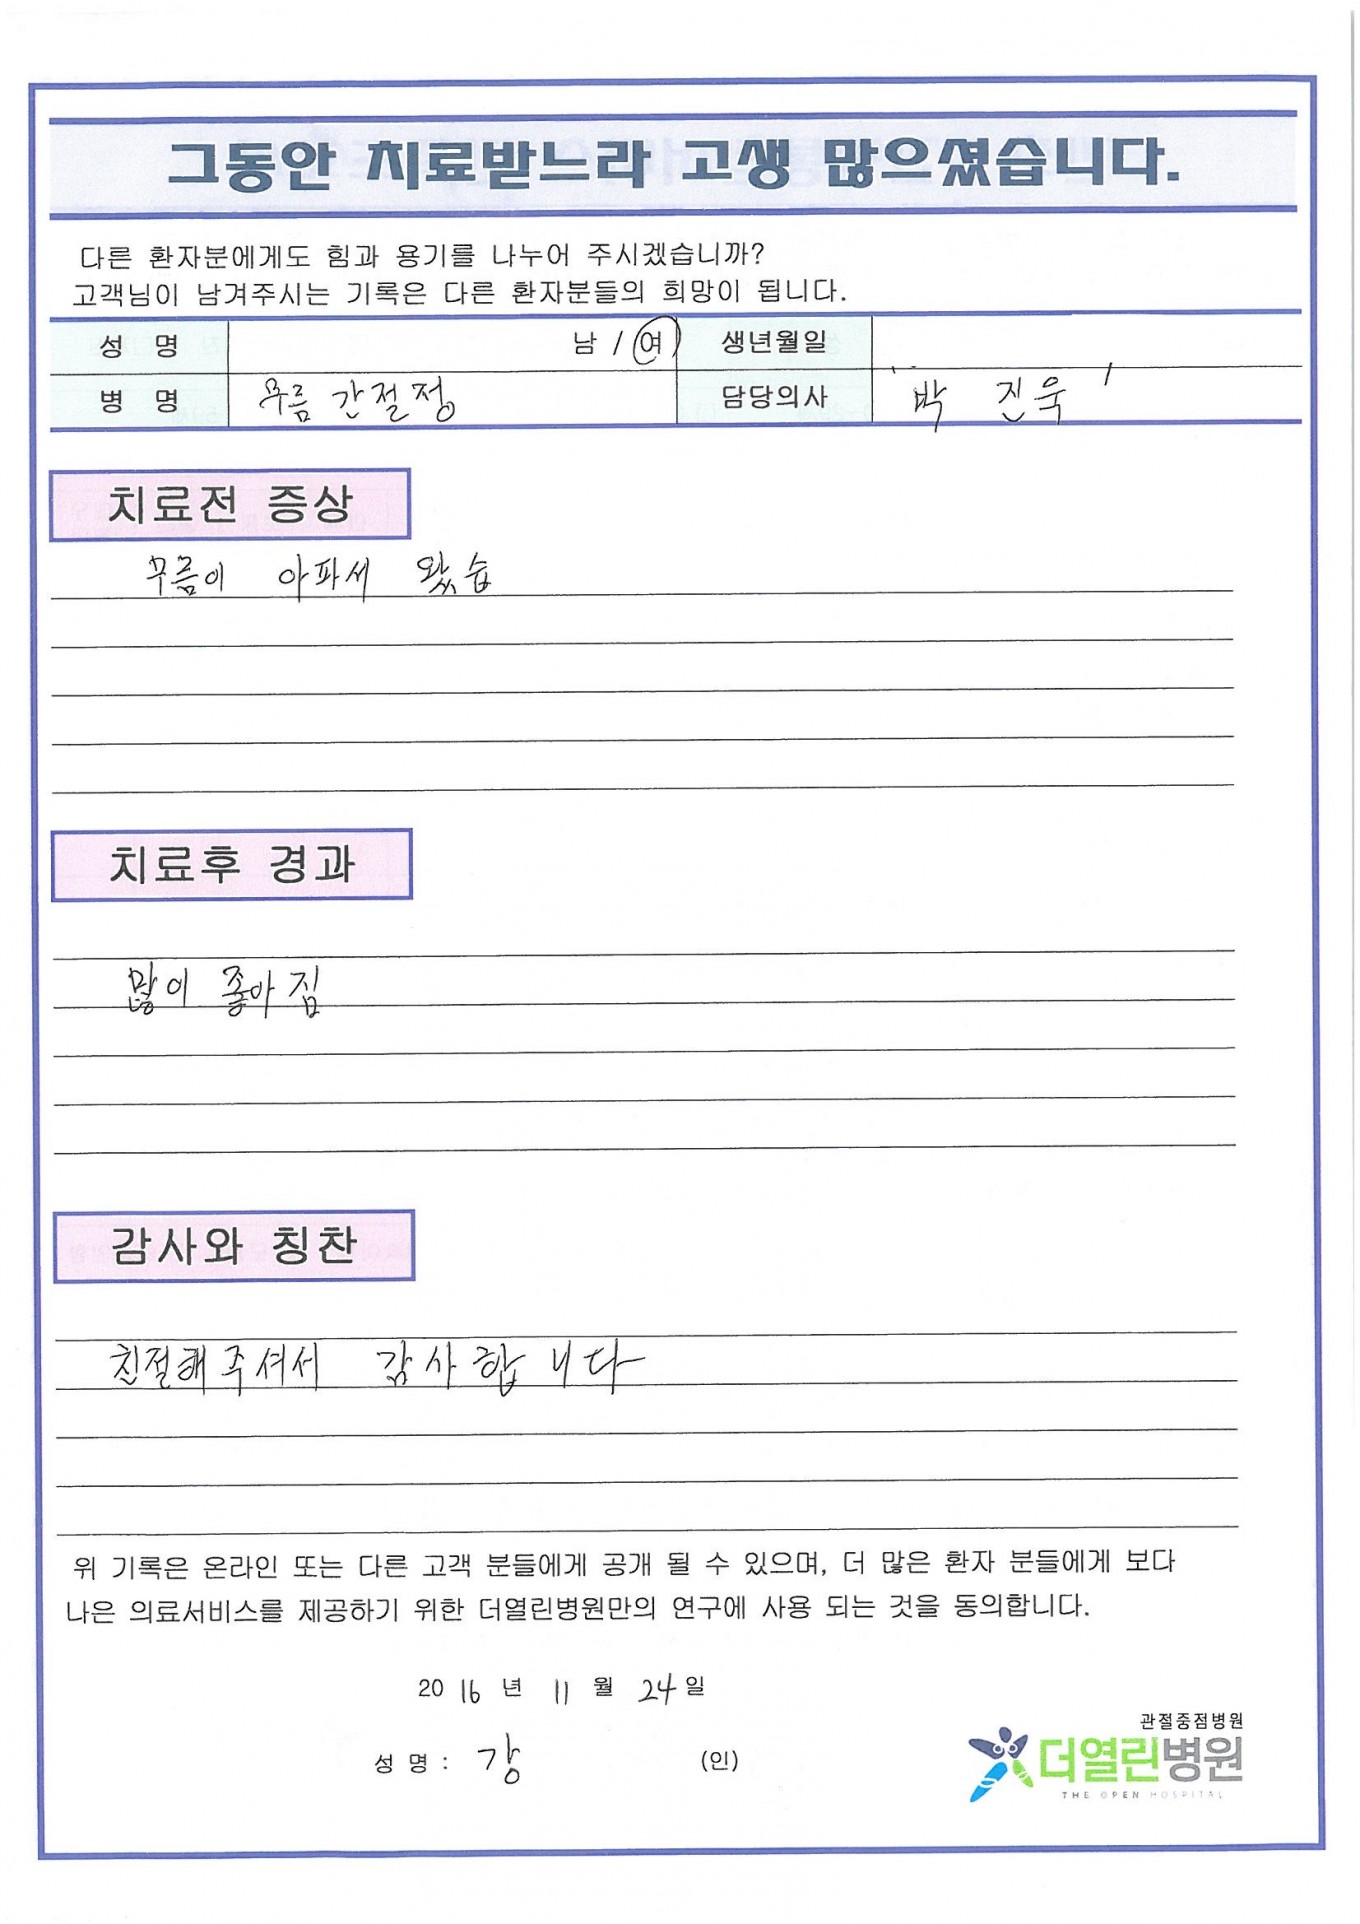 그동안 치료받느라 고생 많으셨습니다.
다른 환자분에게도 힘과 용기를 나누어 주시겠습니까?
고객님이 남겨주시는 기록은 다른 환자분들의 희망이 됩니다.
성 명 남 / 여 생년월일
병 명 무릎 간절정 담당의사 박 진욱
치료전 증상
무릎이 아파서 왔습
치료후 경과
많이 좋아짐
감사와 칭찬
친절해주셔서 감사합니다
위 기록은 온라인 또는 다른 고객 분들에게 공개 될 수 있으며, 더 많은 환자 분들에게 보다
나은 의료서비스를 제공하기 위한 더열린병원만의 연구에 사용 되는 것을 동의합니다.
2016 년 11 월 24 일
관절중점병원
성 명 : 강 (인)
더열린병원
THE OPEN HOSPITAL